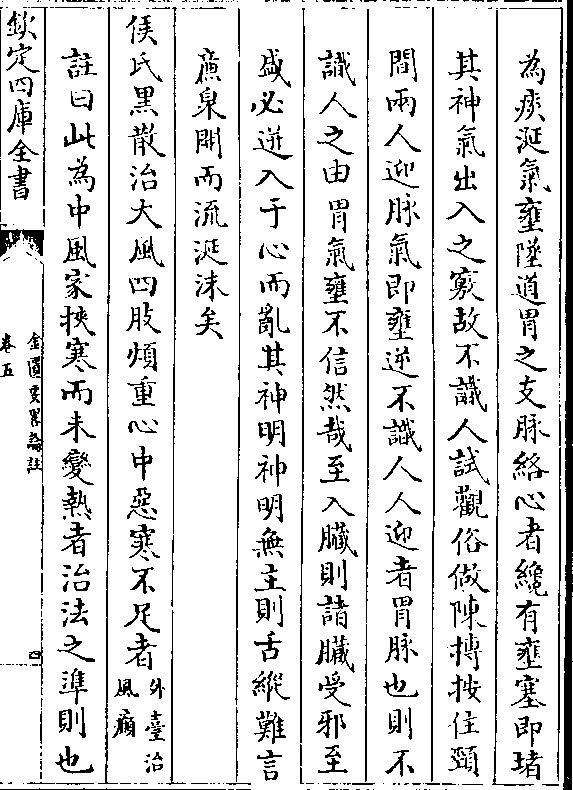 為痰涎氣壅墜道胃之支脉絡心者纔有壅塞即堵
其神氣出入之竅故不識人試觀俗做陳摶按住頸
間兩人迎脉氣即壅逆不識人人迎者胃脉也則不
識人之由胃氣壅不信然哉至入臟則諸臟受邪至
盛必迸入于心而亂其神明神明無主則舌縱難言
廉泉開而流涎沫矣
侯氏黑散治大風四肢煩重心中惡寒不足者外臺治風癲
註曰此為中風家挾寒而未變熱者治法之準則也
欽定四庫全書
金匱要畧論註
卷五
四